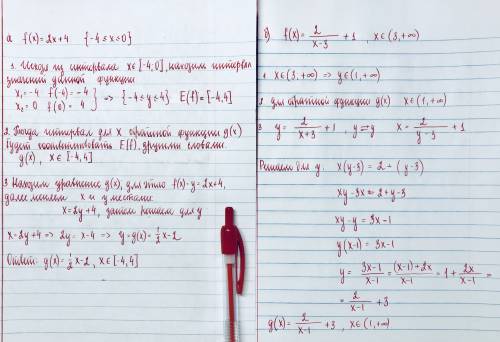 а f(x)=2x+4 {-4≤x≤0}
1. Исходя из интервала x∈[-4,0], находим интервал
значений данной функции
x₁=-4 f(-4)=-4
x₂=0 f(0)=4 } => {-4≤y≤4} E(f)=[-4,4]
2. Тогда интервал для x обратной функции g(x)
будет соответствовать E(f), другими словами
g(x), x∈[-4,4]
3 Находим уравнение g(x), для этого f(x)=y=2x+4,
далее меняем x и y местами:
x=2y+4, затем решаем для y
x=2y+4 => 2y=x-4 => y=g(x)=1/2 x-2
Ответ: g(x)=1/2 x-2, x∈[-4,4]
б) f(x)=2/(x-3)+1, x∈(3,+∞)
1 x∈(3,+∞) => y∈(1,+∞)
2 для обратной функции g(x) x∈(1,+∞)
3 y=2/(x+3)+1, y⇄y x=2/(y-3)+1
Решаем для y: x(y-3)=2+(y-3)
xy-3x=2+y-3
xy-y=3x-1
y(x-1)=3x-1
y=(3x-1)/(x-1)=((x-1)+2x)/(x-1)=1+2x/(x-1)=
=2/(x-1)+3
g(x)=2/(x-1)+3, x∈(1,+∞)